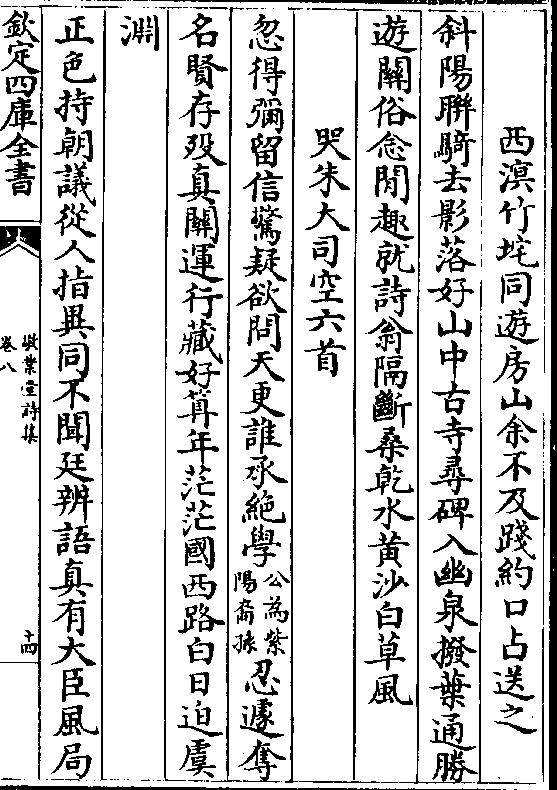 西溟竹垞同遊房山余不及踐約口占送之
斜陽聯騎去影落好山中古寺尋碑入幽泉撥葉通勝
遊關俗念閒趣就詩翁隔斷桑乾水黄沙白草風
哭朱大司空六首
忽得彌留信驚疑欲問天更誰承絶學公為紫陽裔孫忍遽奪
名賢存殁真關運行藏好筭年茫茫國西路白日迫虞
淵
正色持朝議從人指異同不聞廷辨語真有大臣風局
欽定四庫全書
敬業堂詩集
卷八
十四